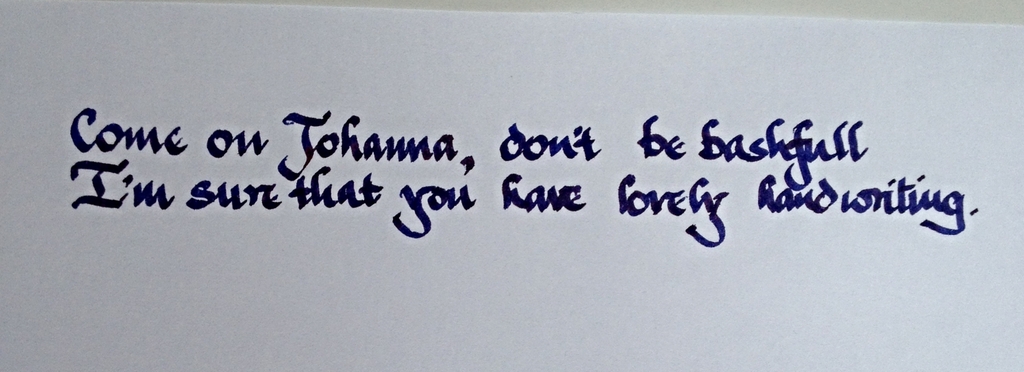 Come on Johanna, don't be bashfull
I'm sure that you have lovely handwriting.